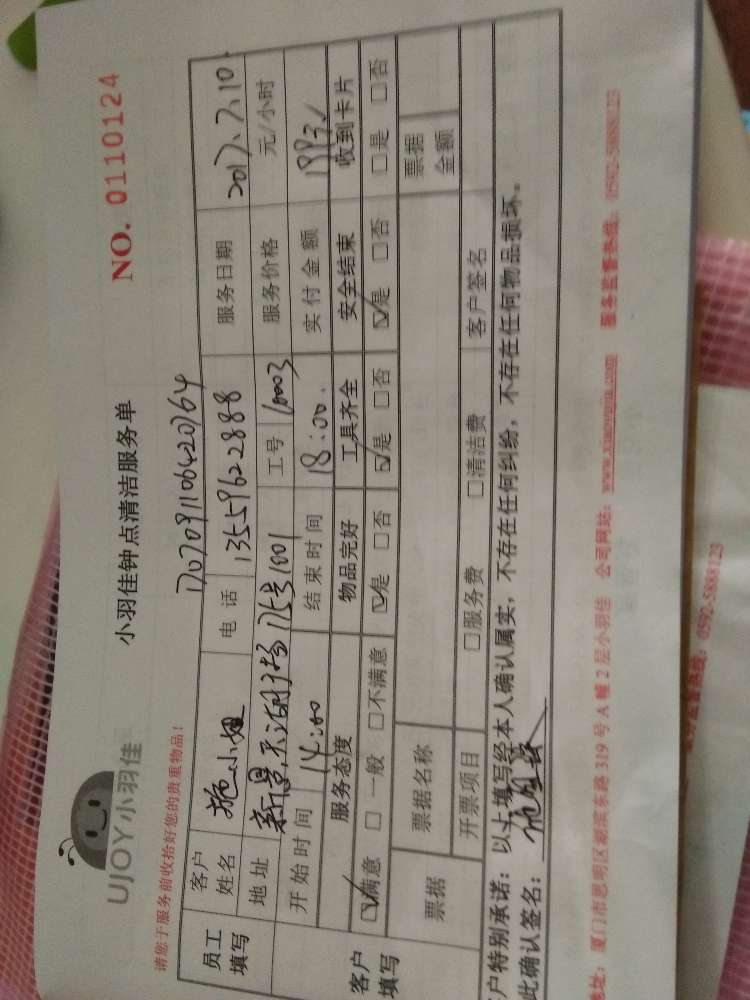 UJOY小羽佳
小羽佳钟点清洁服务单
NO. 0110124
请您于服务前收拾好您的贵重物品!
1707091106420764
员工填写 客户姓名 施小姐 电话 13559622888 服务日期 2017.7.10.
地址 新景 175号1001 工号 10003 服务价格 元/小时
客户填写 开始时间 14:00 结束时间 18:00. 实付金额
服务态度 物品完好 工具齐全 安全结束 收到卡片
☑满意 □一般 □不满意 ☑是 □否 ☑是 □否 ☑是 □否 □是 □否
票据 票据名称 票据金额
开票项目 □服务费 □清洁费 客户签名
户特别承诺: 以上填写经本人确认属实, 不存在任何纠纷, 不存在任何物品损坏.
此确认签名:
地址: 厦门市思明区湖滨东路 319 号 A 幢 2 层小羽佳 公司网址: www.xiaoyujia.com 服务监督热线: 0592-5888123
服务监督热线: 0592-5888123